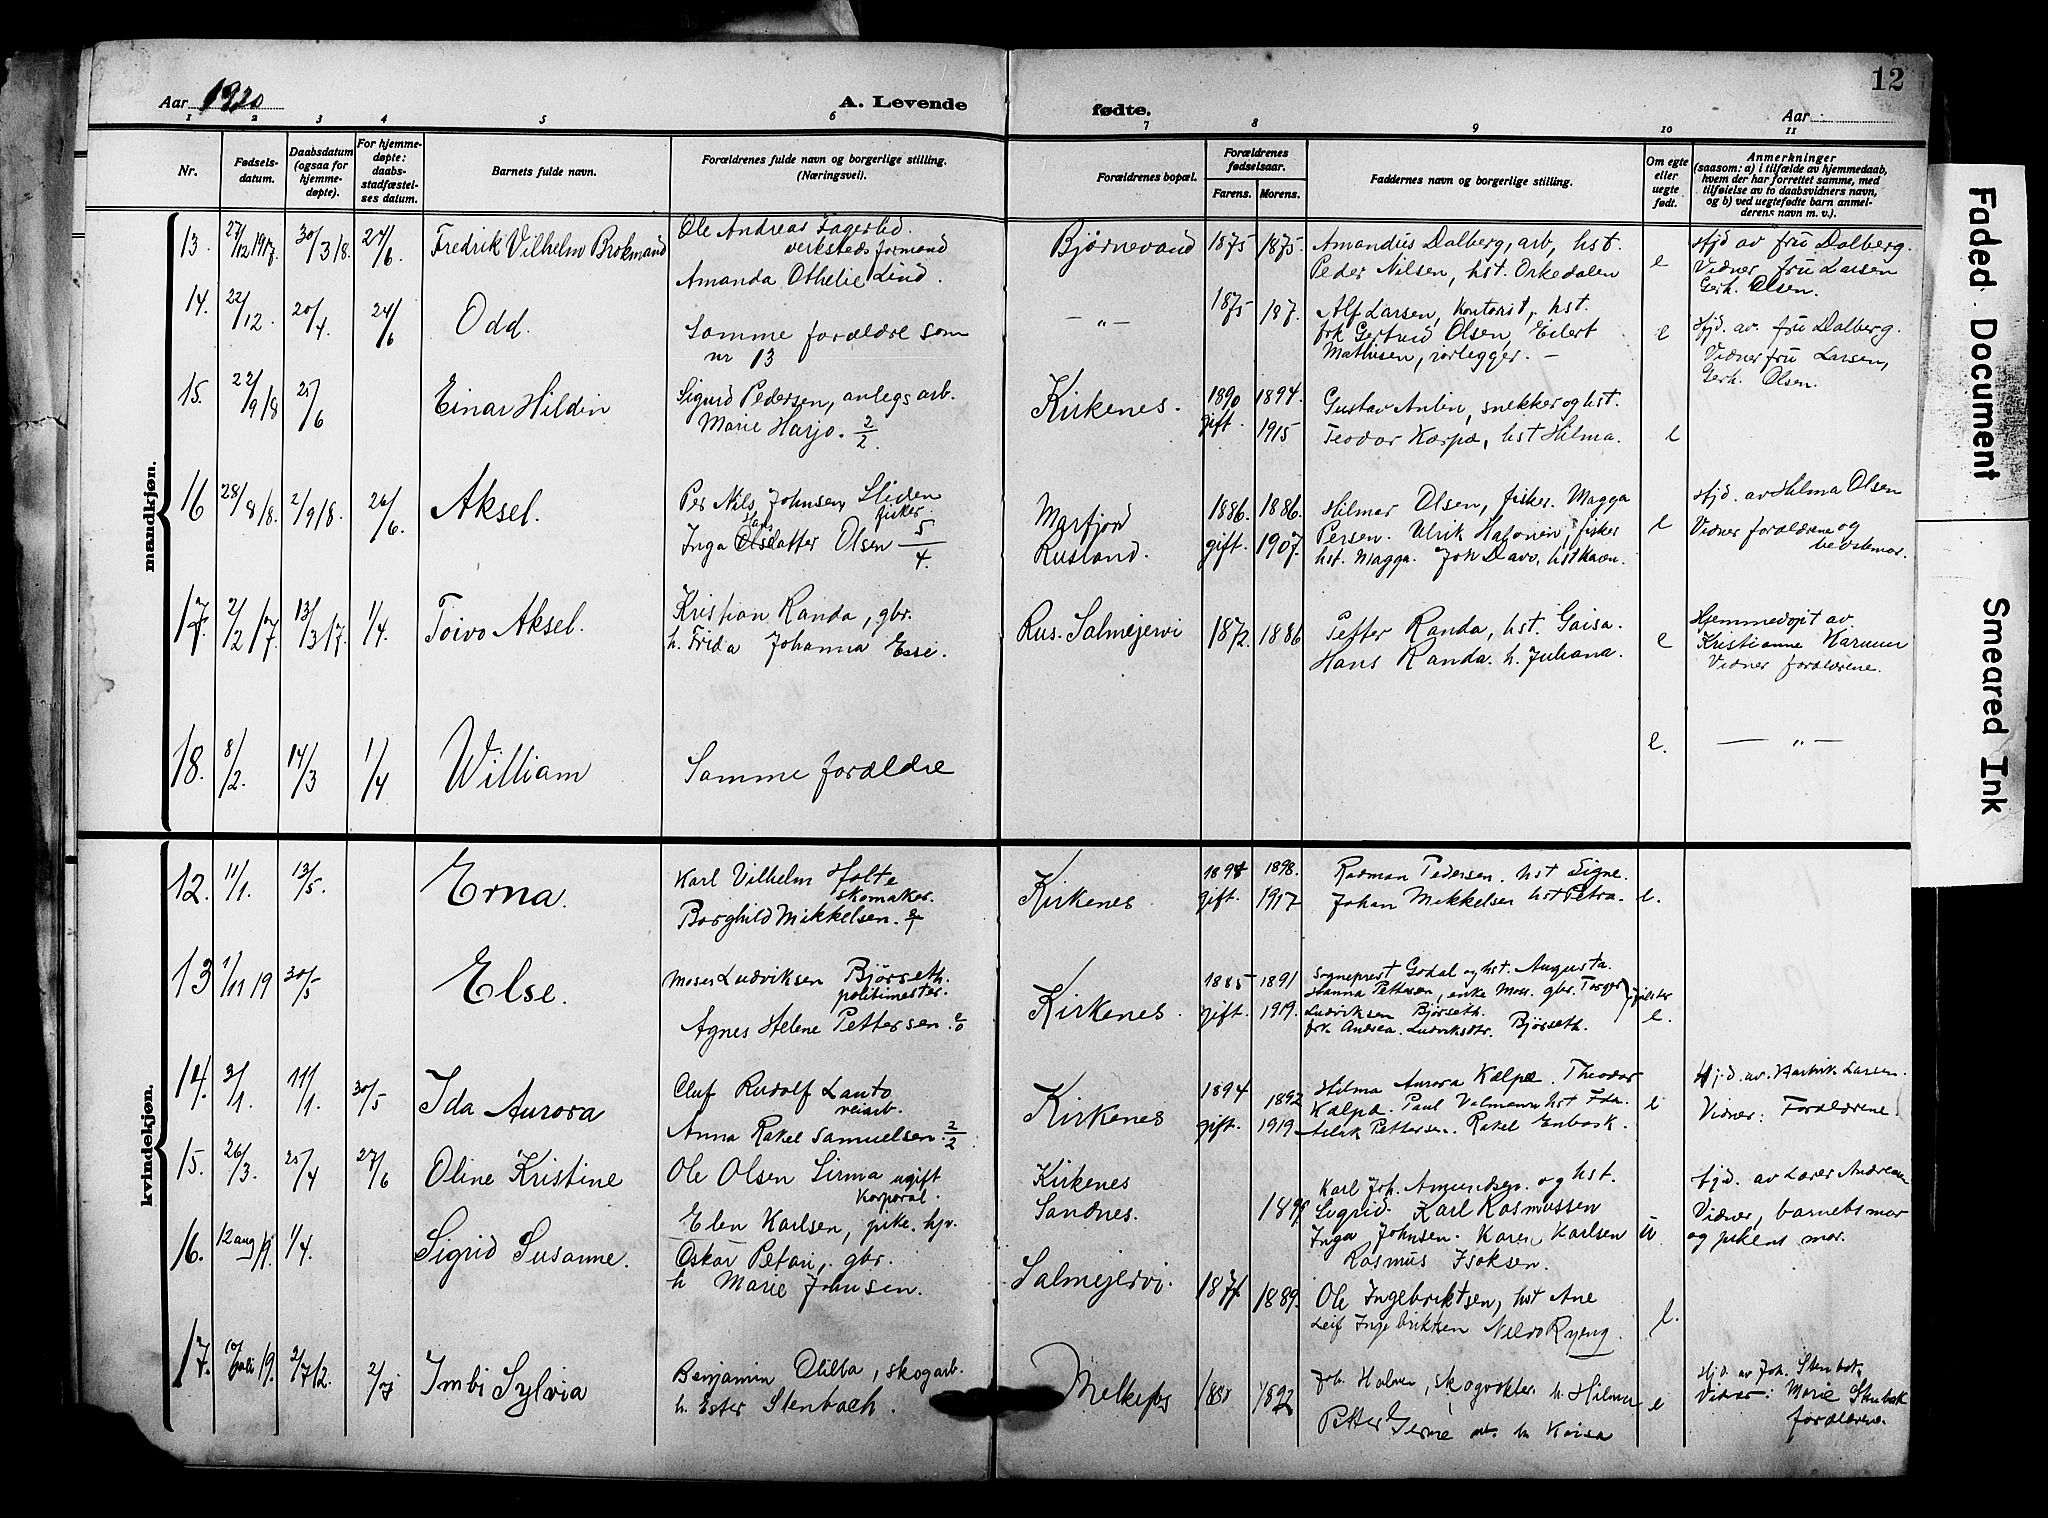 12
Aar 1920
A. Levende fødte.
Aar
1 2 3 4 5 6 7 8 9 10 11
Nr.
Fødsels-
datum.
Daabsdatum
(ogsaa for
hjemme-
døpte).
For hjemme-
døpte:
daabs-
stadfæstel-
ses datum.
Barnets fulde navn.
Forældrenes fulde navn og borgerlige stilling.
(Næringsvei).
Forældrenes bopæl.
Forældrenes
fødselsaar.
Farens. Morens.
Faddernes navn og borgerlige stilling.
Om egte
eller
uegte
født.
Anmerkninger
(saasom: a) i tilfælde av hjemmedaab,
hvem der har forrettet samme, med
tilføielse av to daabsvidners navn,
og b) ved uegtefødte barn anmel-
derens navn m. v.).
mandkjøn.
13. 27/12 1917. 30/3 18. 24/6 Fredrik Vilhelm Brokmand
Ole Andreas Fagerlid
verkstedsformand
Amanda Othelie Lind.
Bjørnevand 1875 1875
Amandus Dalberg, arb, hst.
Peder Nilsen, hst. Orkedalen
e
Hjd av fru Dalberg.
Vidner fru Larsen
Gerh. Olsen.
14. 22/12. 20/4. 24/6 Odd.
Samme forældre som
nr 13
— „ — 1875 187.
Alf Larsen, kontorist, hst.
frk Gertrud Olsen, Eilert
Mathisen, rørlegger. —
e
Hjd. av. fru Dalberg.
Vidner fru Larsen,
Gerh. Olsen.
15. 22/9 18 25/6 Einar Hildin
Sigurd Pedersen, anlegsarb.
Marie Harjo. 2/2
Kirkenes. 1890 1894.
gift. 1915
Gustav Anlin, snekker og hst.
Teodor Karpa, hst Hilma.
e
16 28/8 18. 2/9 18. 26/6. Aksel.
Per Nils Johnsen Sliden
fisker.
Inga Olsdatter Olsen 5/4.
Marfjord
Rusland.
1886. 1886.
gift. 1907.
Hilmar Olsen, fisker. Magga
Persen. Ulrik Halonen, fisker
hst. Magga.
e
Hjd. av Hilma Olsen
Vidner forældrene og
bedstemor.
17. 2/2 17. 13/3 17. 1/4. Toivo Aksel.
Kristian Randa, gbr.
h. Frida Johanna Esse.
Rus. Salmejervi 1872. 1886
Petter Randa, hst. Gaisa.
Hans Randa. h. Juliana.
e
Hjemmedøpt av.
Kristianne
Vidner forældrene.
18. 8/2. 14/3 1/4 William
Samme forældre
e.
— „ —
kvindekjøn.
12. 11/1. 13/5. Erna.
Karl Vilhelm Holte
skomaker.
Borghild Mikkelsen.
Kirkenes 1894 1898.
gift. 1917
Rasman Pedersen. hst Signe.
Johan Mikkelsen hst Petra.
e.
13 1/11 19 30/5 Else.
Moses Ludviksen Bjørseth.
politimester.
Agnes Helene Pettersen. 0/0
Kirkenes. 1885 1891
gift. 1919.
Sogneprest Godal og hst. Augusta.
Hanna Pettersen, enke Moss. gbr. Torger
Ludviksen Bjørseth.
frk. Andrea Ludviksdtr. Bjørseth.
e.
14. 3/1. 11/1. 30/5 Ida Aurora
Oluf Rudolf Lanto
veiarb.
Anna Rakel Samuelsen. 2/2
Kirkenes 1894 1892
gift. 1919
Hilma Aurora Kælpæ. Theodor
Kælpæ. Paul Valmann hst Ida.
Aslak Pettersen. Rakel Enbask.
Hjd. av. Hartvik Larsen.
Vidner: Forældrene
15. 26/3. 25/4 27/6 Oline Kristine
Ole Olsen Sirma ugift
korporal.
Elen Karlsen, pike. hjv.
Kirkenes
Sandnes.
1899
Karl Joh. Amundsen og hst.
Sigrid. Karl Rasmussen
Inga Johnsen. Karen Karlsen
Rasmus Isaksen.
u
Hjd. av Lærer Andreas
Vidner, barnets mor
og pikens mor.
16. 12 aug 19. 1/4. Sigrid Susanne.
Oskar Petari, gbr.
h Marie Johnsen.
Salmejervi. 1871. 1889.
Ole Ingebriktsen, hst Ane
Leif Ingebriktsen Ryeng.
e.
17. 10 juli 19. 2/7 12. 2/7 Imbi Sylvia
Benjamin Olilba, skogarb.
h. Ester Stenbach.
Melkefos 1881 1892
Joh. Halmen, skogvokter h. Hilma
Petter h Kaisa
e
Hjd. av Joh. Stenbak.
Vidner: Marie Stenbak
forældrene.
Faded Document
Smeared Ink